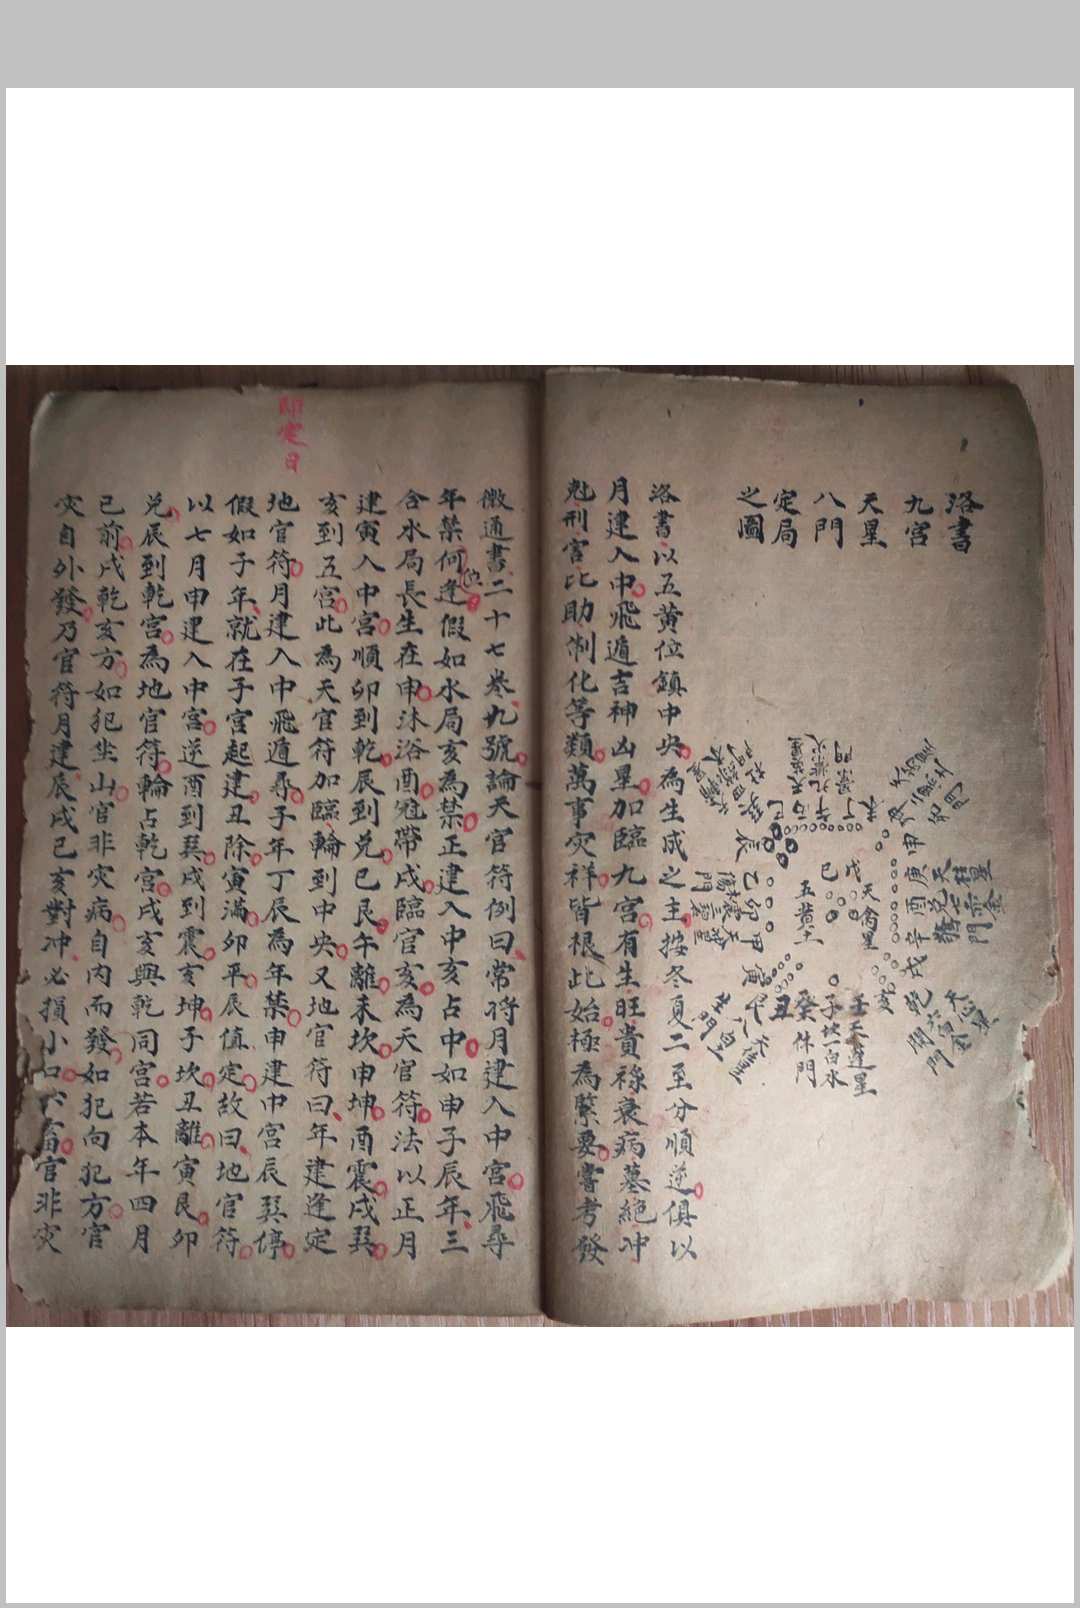 洛書
九宮
天星
八門
定局
之圖
壬天蓬星
子坎一白水
癸休門
天禽星
五黃土
戊
巳
洛書以五黃位鎮中央為生成之主按冬夏二至分順逆俱以
月建入中飛遁吉神凶星加臨九宮有生旺貴祿衰病墓絕冲
尅刑害比助制化等類萬事灾祥皆根此始極為緊要嘗考發
微通書二十七卷九號論天官符例曰常將月建入中宮飛尋
年禁何逢假如水局亥為禁正建入中亥占中如申子辰年三
位
合水局長生在申沐浴酉冠帶戌臨官亥為天官符法以正月
建寅入中宮順卯到乾辰到兌巳艮午離未坎申坤酉震戌巽
亥到五宮此為天官符加臨輪到中央又地官符曰年建逢定
地官符月建入中飛遁尋子年丁辰為年禁申建中宮辰巽停
即定日
假如子年就在子宮起建丑除寅滿卯平辰值定故曰地官符
以七月申建入中宮逆酉到巽戌到震亥坤子坎丑離寅艮卯
兌辰到乾宮為地官符輪占乾宮戌亥與乾同宮若本年四月
已前戌乾亥方如犯坐山官非灾病自內而發如犯向犯方官
灾自外發乃官符月建辰戌巳亥對冲必損小口六畜官非灾